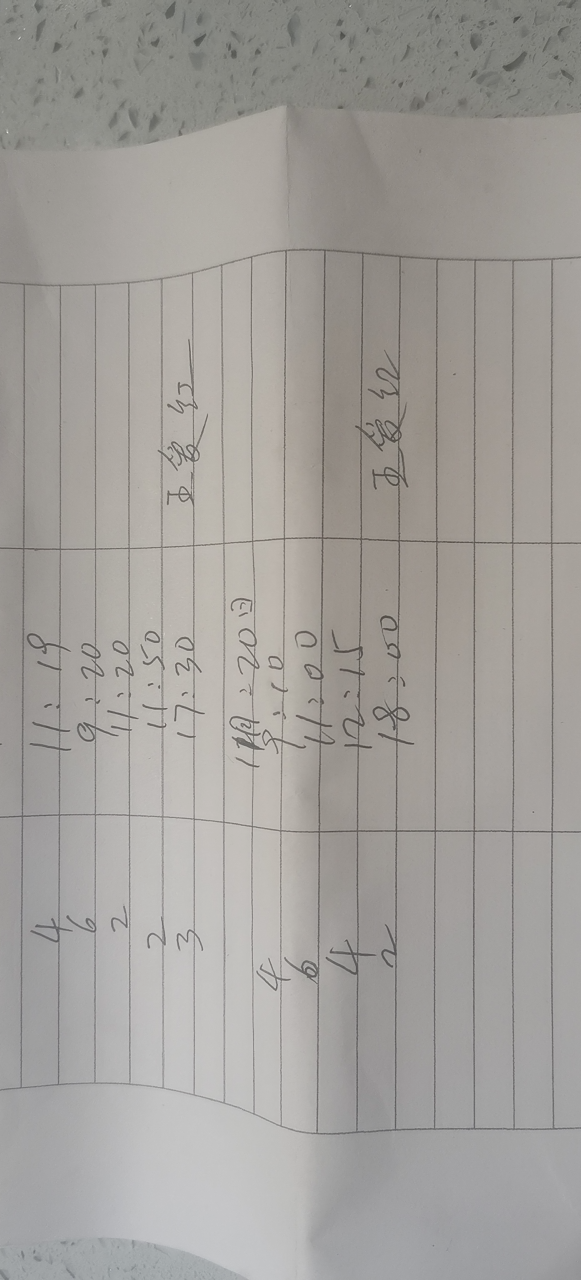 4 11:19
6 9:20
2 11:20
2 11:50
3 17:30 王管红
:20日
4 9:10
6 11:00
4 12:15
2 18:00 王管红